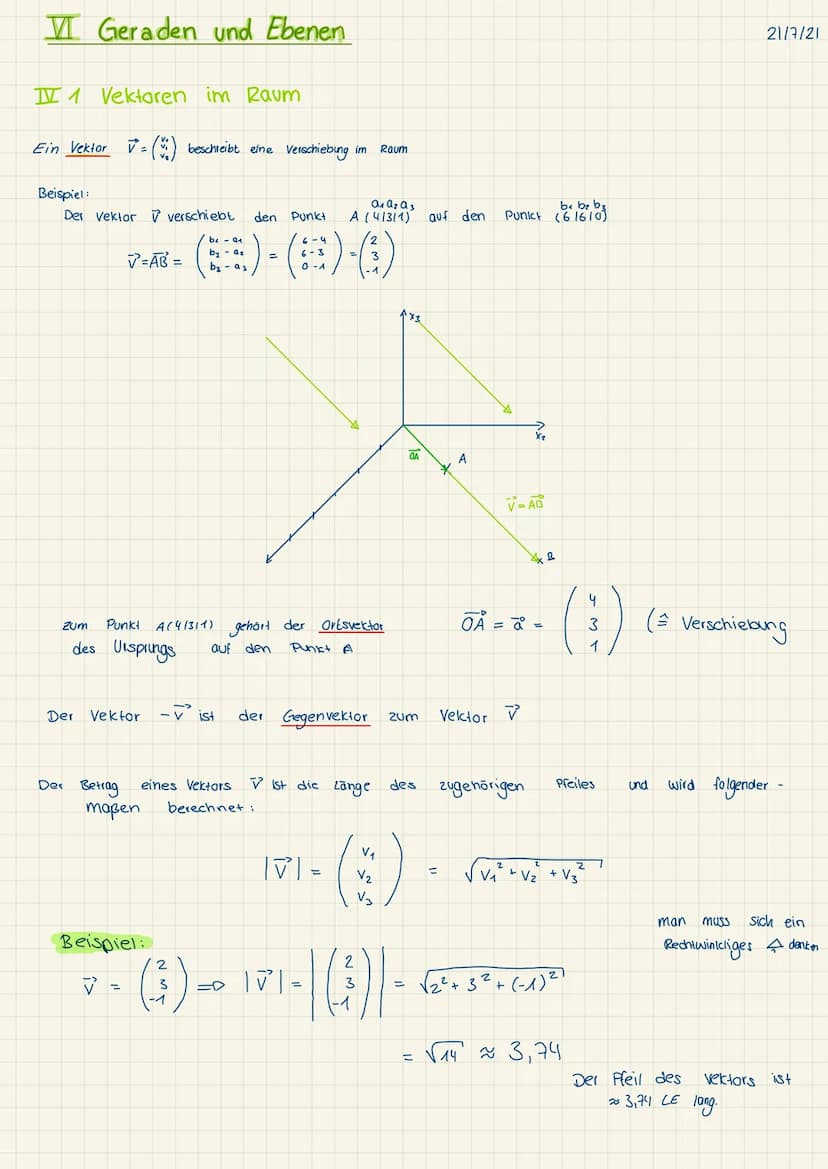 VI Geraden und Ebenen
21/7/21
IV 1 Vektoren im Raum
Ein Vektor v⃗ = beschreibt eine Verschiebung im Raum
Beispiel:
a1 a2 a3 b1 b2 b3
Der Vektor v⃗ verschiebt den Punkt A (4|3|1) auf den Punkt (6|6|0)
v⃗ = AB⃗ = (b1 - a1 b2 - a2 b3 - a3) = (6-4 6-3 0-1) = (2 3 -1)
x3
x2
OA⃗
A
v⃗ = AB⃗
B
zum Punkt A(4|3|1) gehört der Ortsvektor OA⃗ = a⃗ = (4 3 1) (≙ Verschiebung
des Ursprungs auf den Punkt A
Der Vektor -v⃗ ist der Gegenvektor zum Vektor v⃗
Der Betrag eines Vektors v⃗ ist die Länge des zugehörigen Pfeiles und wird folgender-
maßen berechnet:
|v⃗| = (v1 v2 v3) = √v1² + v2² + v3²
man muss sich ein
Rechtwinkliges △ denken
Beispiel:
v⃗ = (2 3 -1) => |v⃗| = |(2 3 -1)| = √2² + 3² + (-1)²
= √14 ≈ 3,74
Der Pfeil des Vektors ist
≈ 3,74 LE lang.